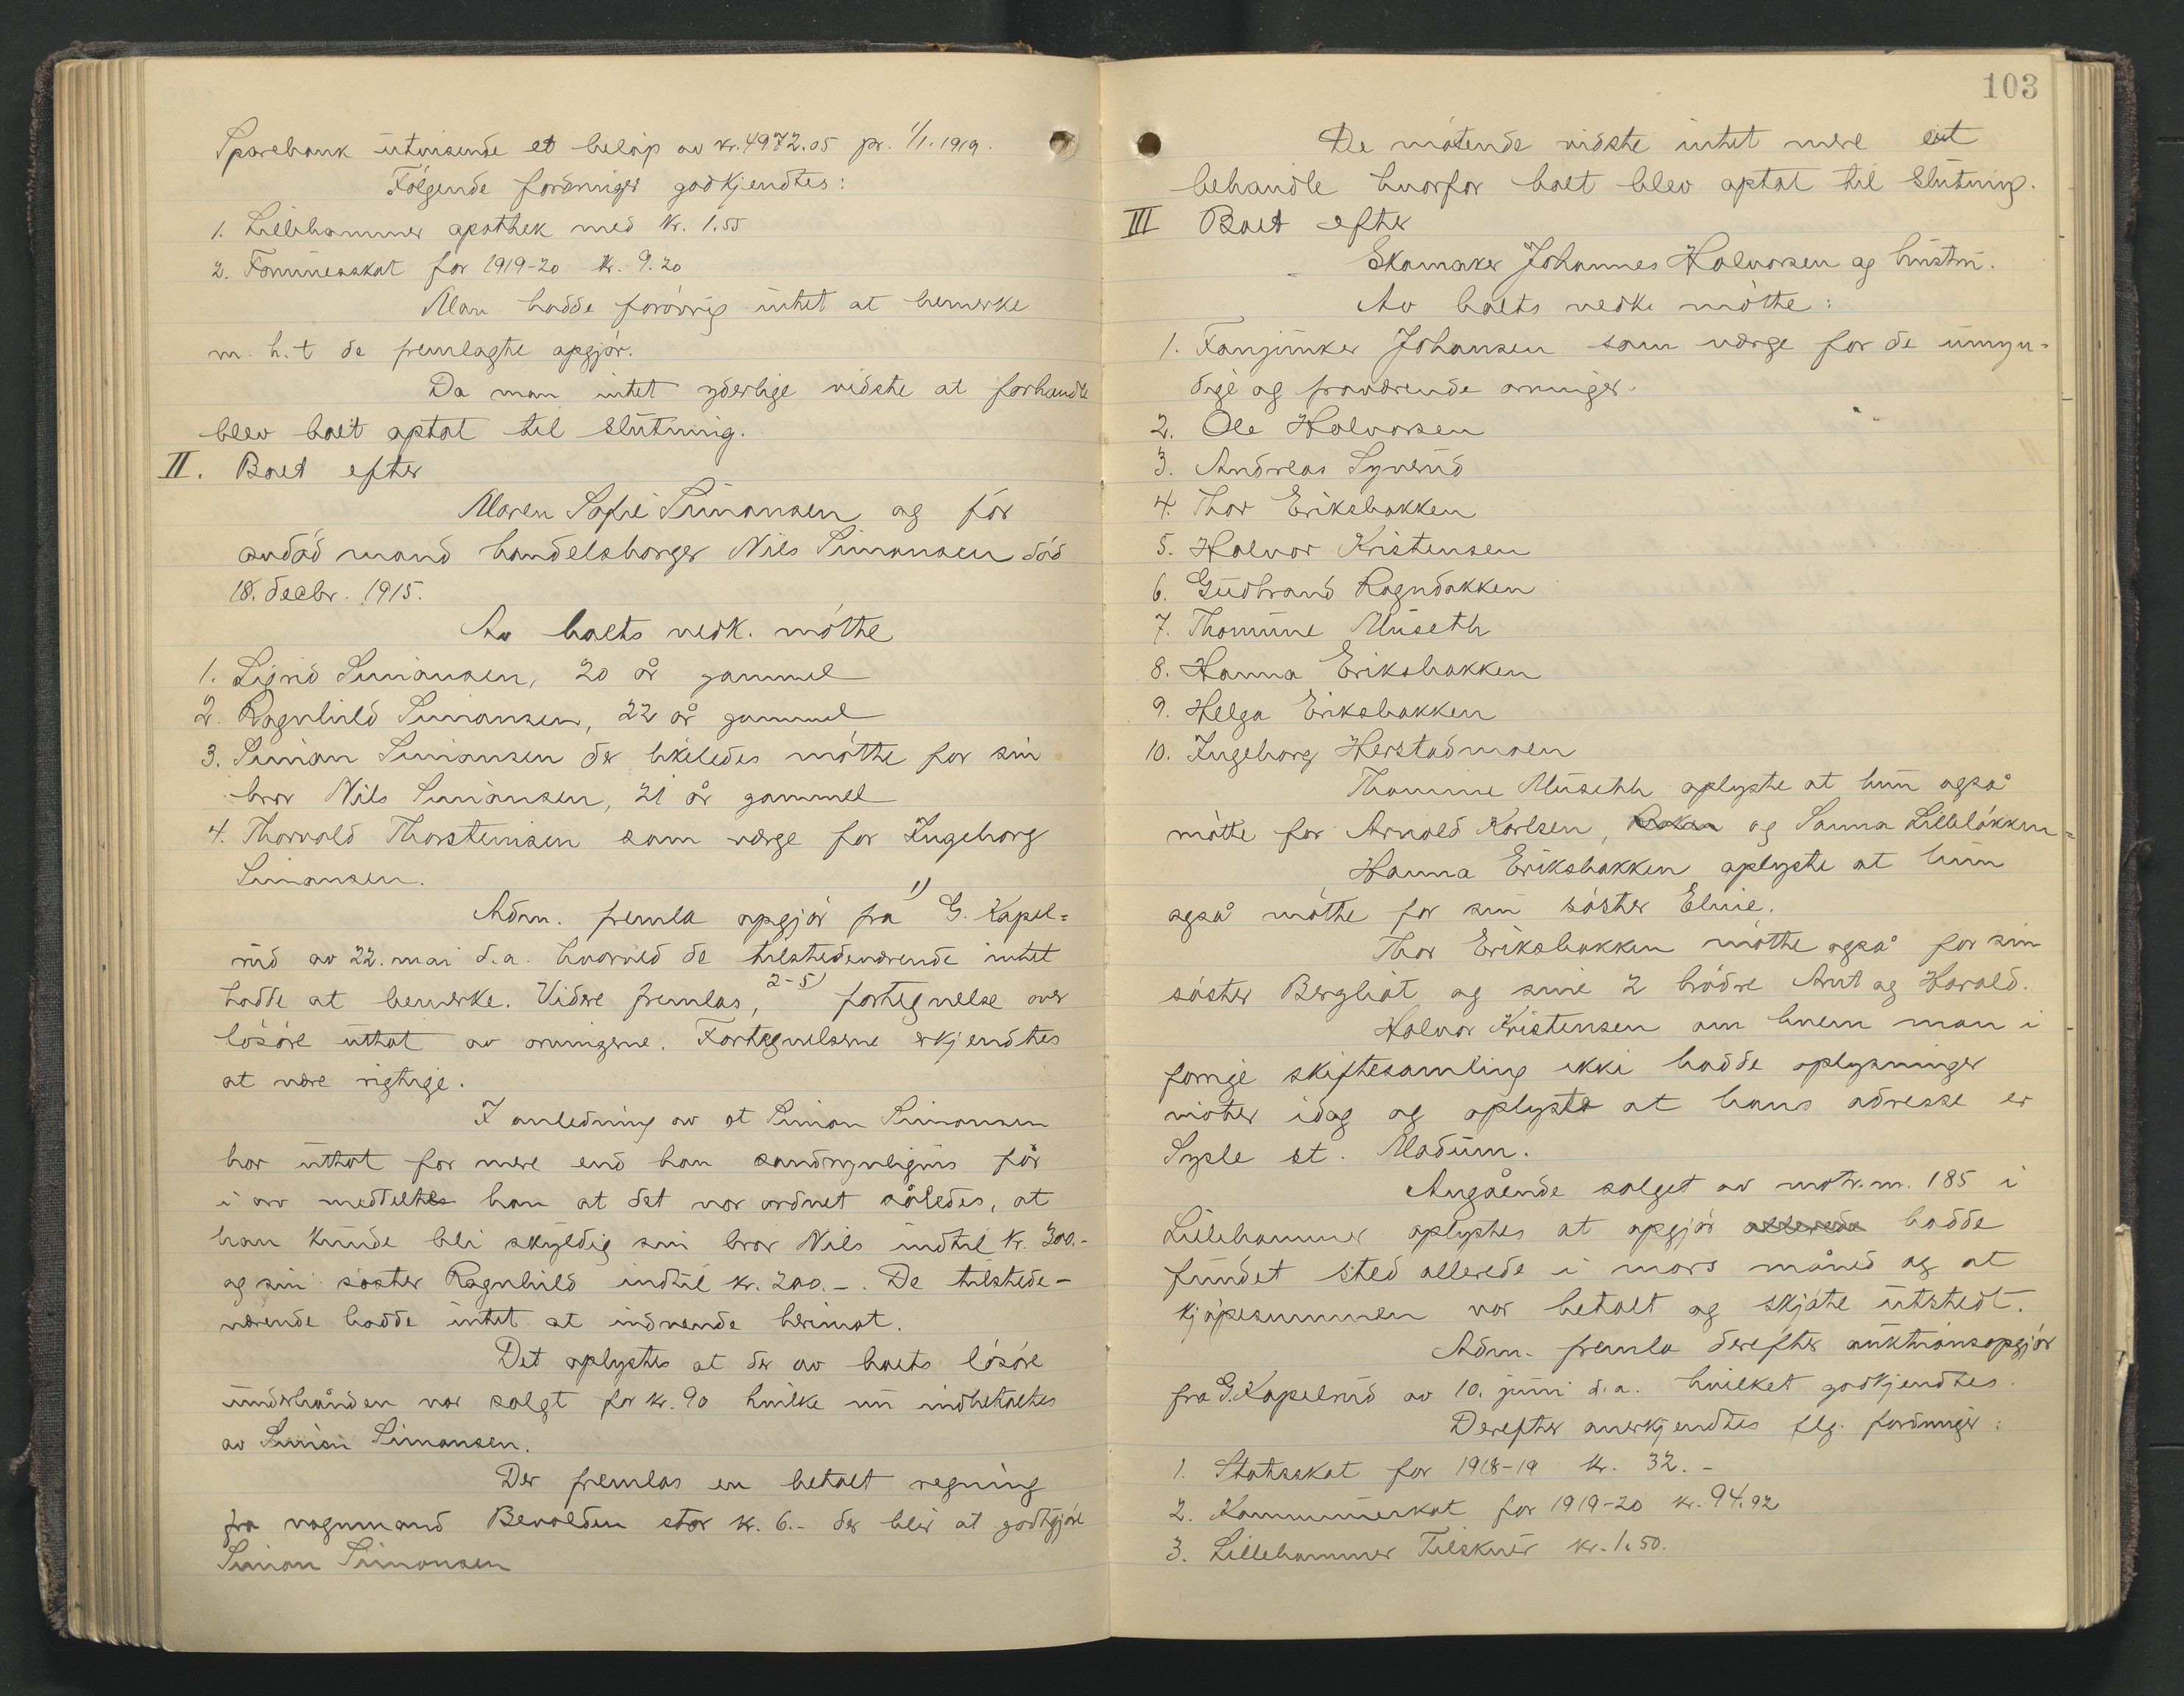 Sparebank utvisende et beløp av kr. 4972.05 pr. 1/1. 1919.
Følgende fordringer godkjendtes:
1. Lillehammer apothek med kr. 1.55
2. Formueskat for 1919-20 kr. 9.20
Man hadde forøvrig intet at bemerke
m. h. t de fremlagte opgjør.
Da man intet yderlige vidste at forhandle
blev boet optat til slutning.
II. Boet efter
Maren Sofie Simonsen og før
avdød mand handelsborger Nils Simonsen død
18. decbr. 1915.
Av boets vedk. møtte
1. Sigrid Simonsen, 20 år gammel
2. Ragnhild Simonsen, 22 år gammel
3. Simon Simonsen der likeledes møtte for sin
bror Nils Simonsen, 21 år gammel
4. Thorvald Thorsteinsen som værge for Ingeborg
Simonsen.
Adm. fremla opgjør fra 1) G. Kapel=
rud av 22. mai d.a. hvorved de tilstedeværende intet
hadde at bemerke. Videre fremlas, 2-5) fortegnelse over
løsøre uttat av arvingerne. Fortegnelserne erkjendtes
at være rigtige.
I anledning av at Simon Simonsen
har uttat for mere end han sandsynligvis får
i arv meddeltes han at det var ordnet således, at
han kunde bli skyldig sin bror Nils indtil kr. 300.-
og sin søster Ragnhild indtil kr. 200.-. De tilstede-
værende hadde intet at indvende herimot.
Det oplystes at der av boets løsøre
underhånden var solgt for kr. 90 hvilke nu indbetaltes
av Simon Simonsen.
Der fremlas en betalt regning
fra vognmand Bevolden stor kr. 6.- der blir at godtgjøre
Simon Simonsen
103
De møtende vidste intet mere at
behandle hvorfor boet blev optat til slutning.
III Boet efter
Skomaker Johannes Halvorsen og hustru.
Av boets vedk. møtte:
1. Fanjunker Johansen som værge for de umyn=
dige og fraværende arvinger.
2. Ole Halvorsen
3. Andreas Syverud
4. Thor Eriksbakken
5. Halvor Kristensen
6. Gudbrand Rogndokken
7. Thomine Museth
8. Hanna Eriksbakken
9. Helga Eriksbakken
10. Ingeborg Herstadmoen
Thomine Museth oplyste at hun også
møtte for Arnold Karlsen, og Sanna Lilleløkken=
Hanna Eriksbakken oplyste at hun
også møtte for sin søster Eline.
Thor Eriksbakken møtte også for sin
søster Bergliot og sine 2 brødre Arnt og Harald.
Halvor Kristensen om hvem man i
forrige skiftesamling ikke hadde oplysninger
møter idag og oplyste at hans adresse er
Sysle st. Modum.
Angående salget av matr. nr. 185 i
Lillehammer oplystes at opgjør allerede hadde
fundet sted allerede i mars måned og at
kjøpesummen var betalt og skjøte utstedt.
Adm. fremla derefter auktionsopgjør
fra G. Kapelrud av 10. juni d.a. hvilket godkjendtes.
Derefter anerkjendtes flg. fordringer:
1. Statsskat for 1918-19 kr. 32.-
2. Kommuneskat for 1919-20 kr. 94.92
3. Lillehammer Tilskuer kr. 1.50.